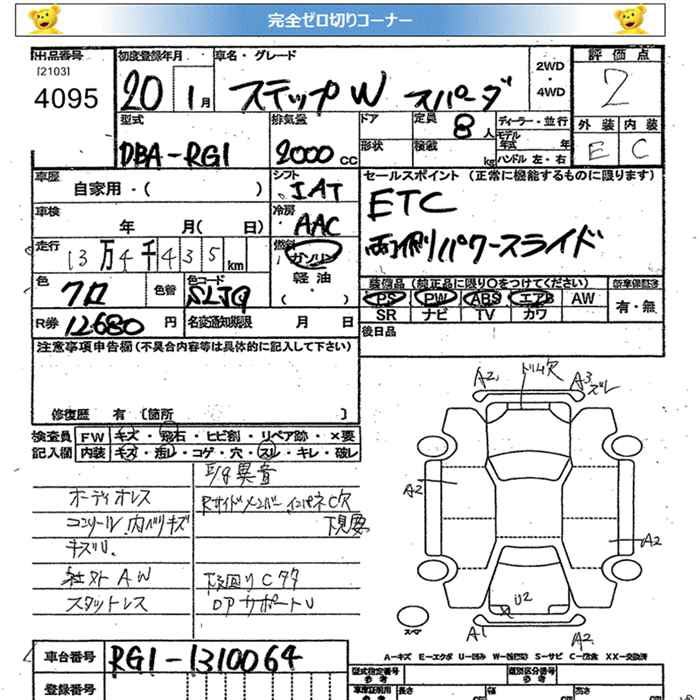 完全ゼロ切りコーナー
出品番号 初度登録年月 車名・グレード 2WD・4WD 評価点
[2103]
4095 20 1月 ステップW スパーダ 2
型式 排気量 ドア 定員 8人 ディーラー・並行 外装 内装
DBA-RG1 2000cc 形状 積載 kg モデル年式 年 ハンドル 左・右 E C
車歴 自家用・( ) シフト IAT セールスポイント (正常に機能するものに限ります)
車検 年 月( 日) 冷房 AAC ETC
走行 13万4千435km 燃料 ガソリン 軽油・( ) 両側パワースライド
色 クロ 色替 色コード 装備品(純正品に限り○をつけてください) 新車保証書
PS PW ABS エアB AW 有・無
R券 12680円 名変通知期限 月 日 SR ナビ TV カワ
後日品
注意事項申告欄(不具合内容等は具体的に記入して下さい)
修復歴 有 [箇所 ]
検査員記入欄 FW キズ・飛石・ヒビ割・リペア跡・×要
内装 キズ・汚レ・コゲ・穴・スリ・キレ・破レ
異音
オーディオレス Rサイドメンバー インパネC欠
コンソール、内ハリキズ 下見要
キズU.
社外AW 下回りCタタ
スタットレス DPサポートU
A2 トリム穴 A3 ズレ
A2
A2
U2
スペア A1 A2
A-キズ E-エクボ U-凹み S-サビ C-腐食 XX-交換済
車台番号 RG1-1310064
登録番号
型式指定番号 参考 類別区分番号 参考
長さ 幅 高さ